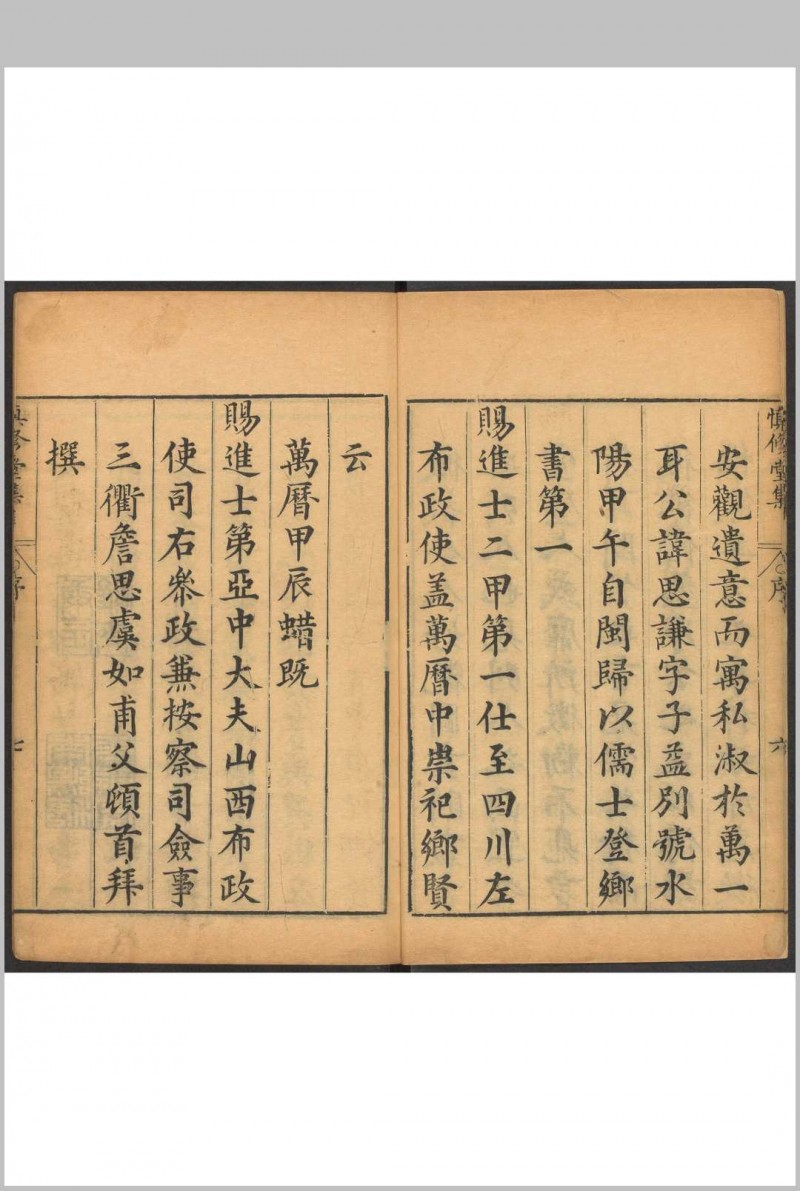 慎修堂集
序
六
安觀遺意而寓私淑於萬一
耳公諱思謙字子益別號水
陽甲午自閩歸以儒士登鄉
書第一
賜進士二甲第一仕至四川左
布政使盖萬曆中崇祀鄉賢
云
萬曆甲辰蜡既
賜進士第亞中大夫山西布政
使司右叅政兼按察司僉事
三衢詹思虞如甫父頓首拜
撰
慎修堂集
序
七